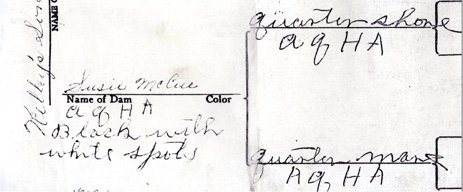 Kelley's
NAME O
Susie McCue
Name of Dam Color
A Q H A
Black with
white spots
quarter shone
A Q H A
quarter mare
A Q H A